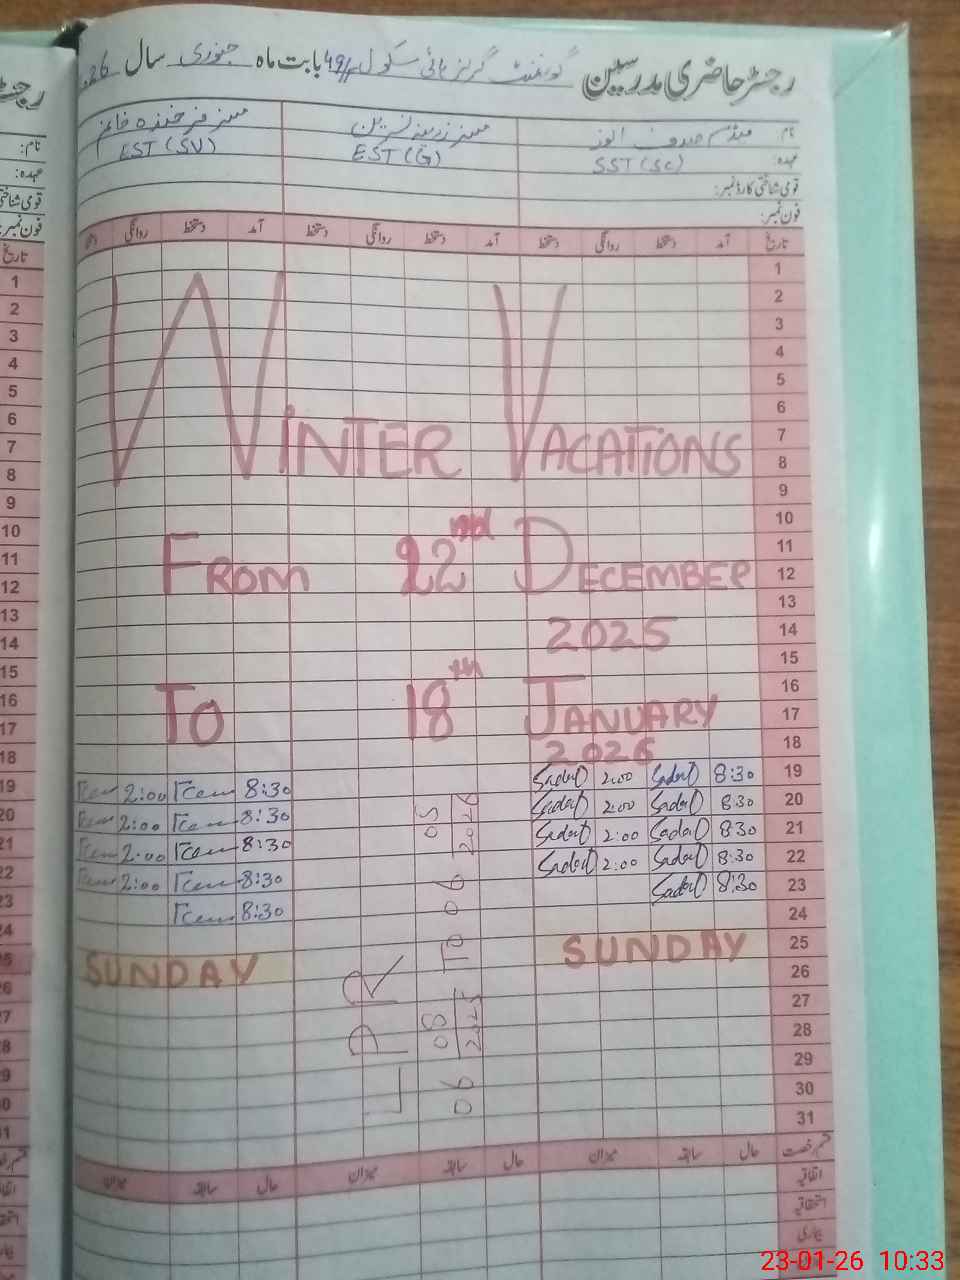 رجسٹر حاضری مدرسین گورنمنٹ گرلز ہائی سکول 49/ بابت ماہ جنوری سال 26
نام: میڈم صدف انور مسز زرینہ نسرین مسز فرخندہ خانم
عہدہ: SST (SC) EST (G) EST (SV)
قومی شناختی کارڈ نمبر:
فون نمبر:
تاریخ آمد دستخط روانگی دستخط آمد دستخط روانگی دستخط آمد دستخط روانگی
1
2
3
4
5
6
7
8
9
10
11
12
13
14
15
16
17
18
19
20
21
22
23
24
25
26
27
28
29
30
31
WINTER VACATIONS
FROM 22nd DECEMBER
2025
TO 18th JANUARY
2026
8:30 Sadaf 2:00 Sadaf 8:30 2:00
8:30 Sadaf 2:00 Sadaf 8:30 2:00
8:30 Sadaf 2:00 Sadaf 8:30 2:00
8:30 Sadaf 2:00 Sadaf 8:30 2:00
8:30 Sadaf 8:30
SUNDAY SUNDAY
LPR
06 08 2025 TO 06 05 2026
قسم رخصت حال سابقہ میزان حال سابقہ میزان حال سابقہ میزان
اتفاقیہ
استحقاقیہ
بیماری
رجسٹر
نام:
عہدہ:
قومی شناختی
فون نمبر:
تاریخ
1
2
3
4
5
6
7
8
9
10
11
12
13
14
15
16
17
18
19
20
21
22
23
24
23-01-26 10:33